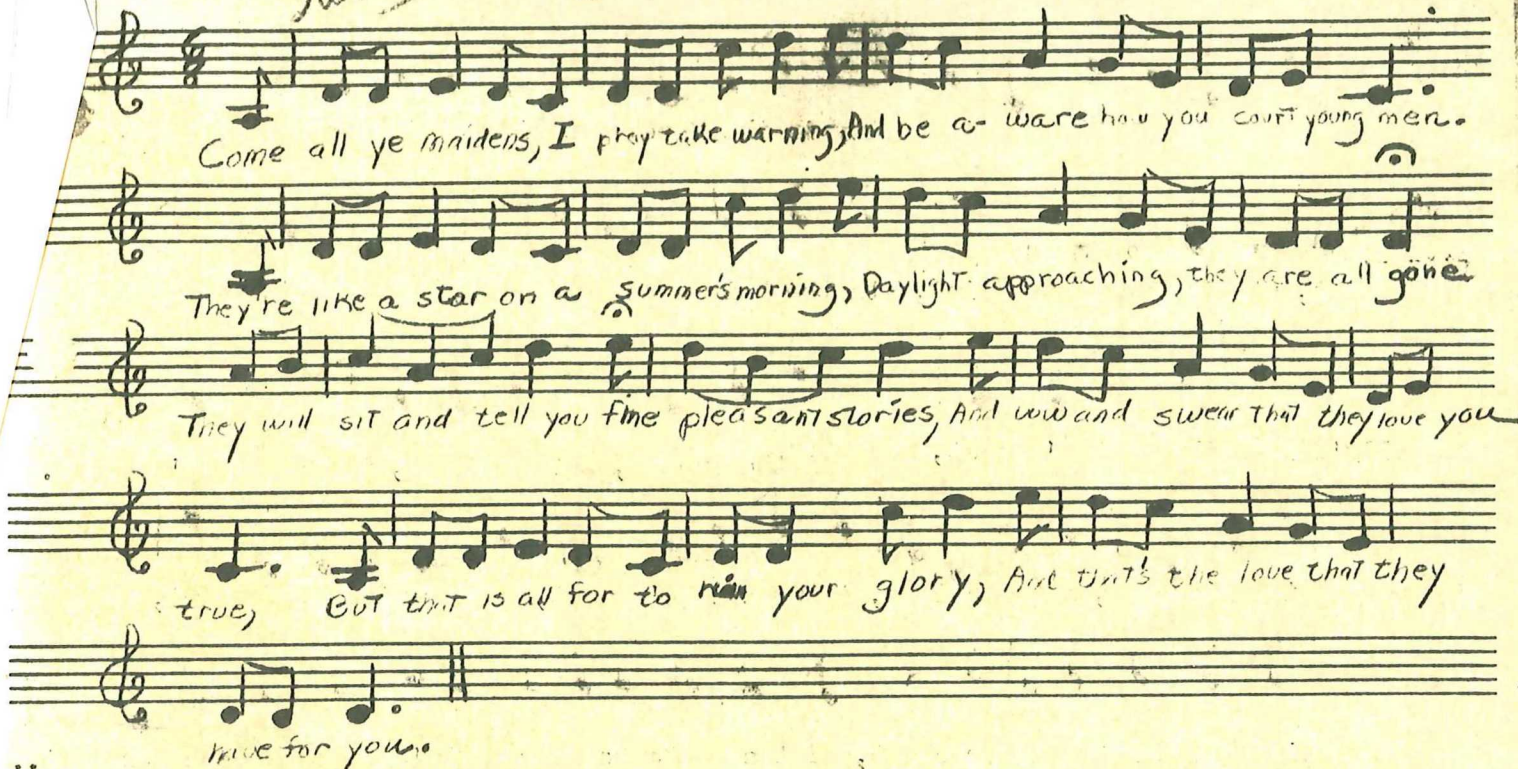 Come all ye maidens, I pray take warning, And be a- ware how you court young men.
They're like a star on a summer's morning, Daylight approaching, they are all gone
They will sit and tell you fine pleasant stories, And vow and swear that they love you
true, But that is all for to ruin your glory, And that's the love that they
have for you.